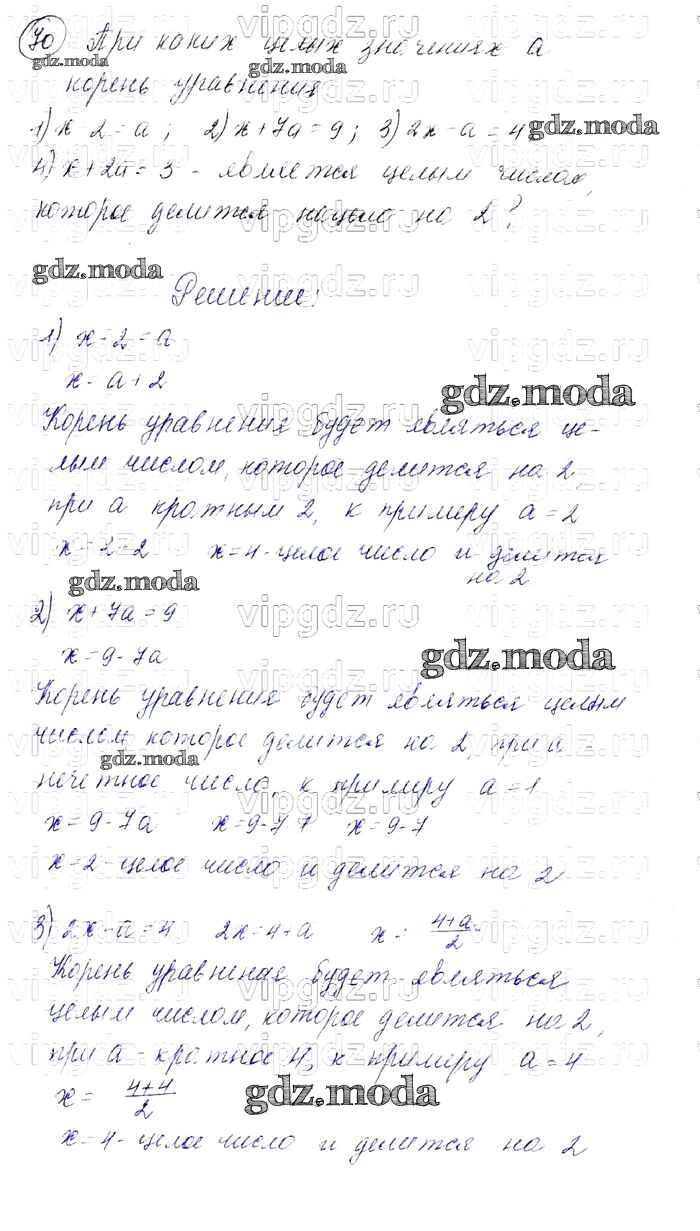 70 При каких целых значениях а
gdz.moda gdz.moda
корень уравнения
1) х 2 = а ; 2) х + 7а = 9 ; 3) 2х - а = 4 gdz.moda
4) х + 2а = 3 - является целым числом,
которое делится нацело на 2?
gdz.moda
Решение:
1) х - 2 = а
х - а + 2
gdz.moda
Корень уравнения будет являться це-
лым числом, которое делится на 2,
при а кратным 2, к примеру а = 2
х - 2 = 2 х = 4 - целое число и делится
на 2
gdz.moda
2) х + 7а = 9
х = 9 - 7а
gdz.moda
Корень уравнения будет являться целым
числом которое делится на 2, при а -
gdz.moda
нечетное число, к примеру а = 1
х = 9 - 7а х = 9 - 7 х = 9 - 7
х = 2 - целое число и делится на 2
3) 2х - а = 4 2х = 4 + а х = 4+а/2
Корень уравнения будет являться
целым числом, которое делится на 2,
при а - кратное 4, к примеру а = 4
х = 4+4/2
gdz.moda
х = 4 - целое число и делится на 2
vipgdz.ru